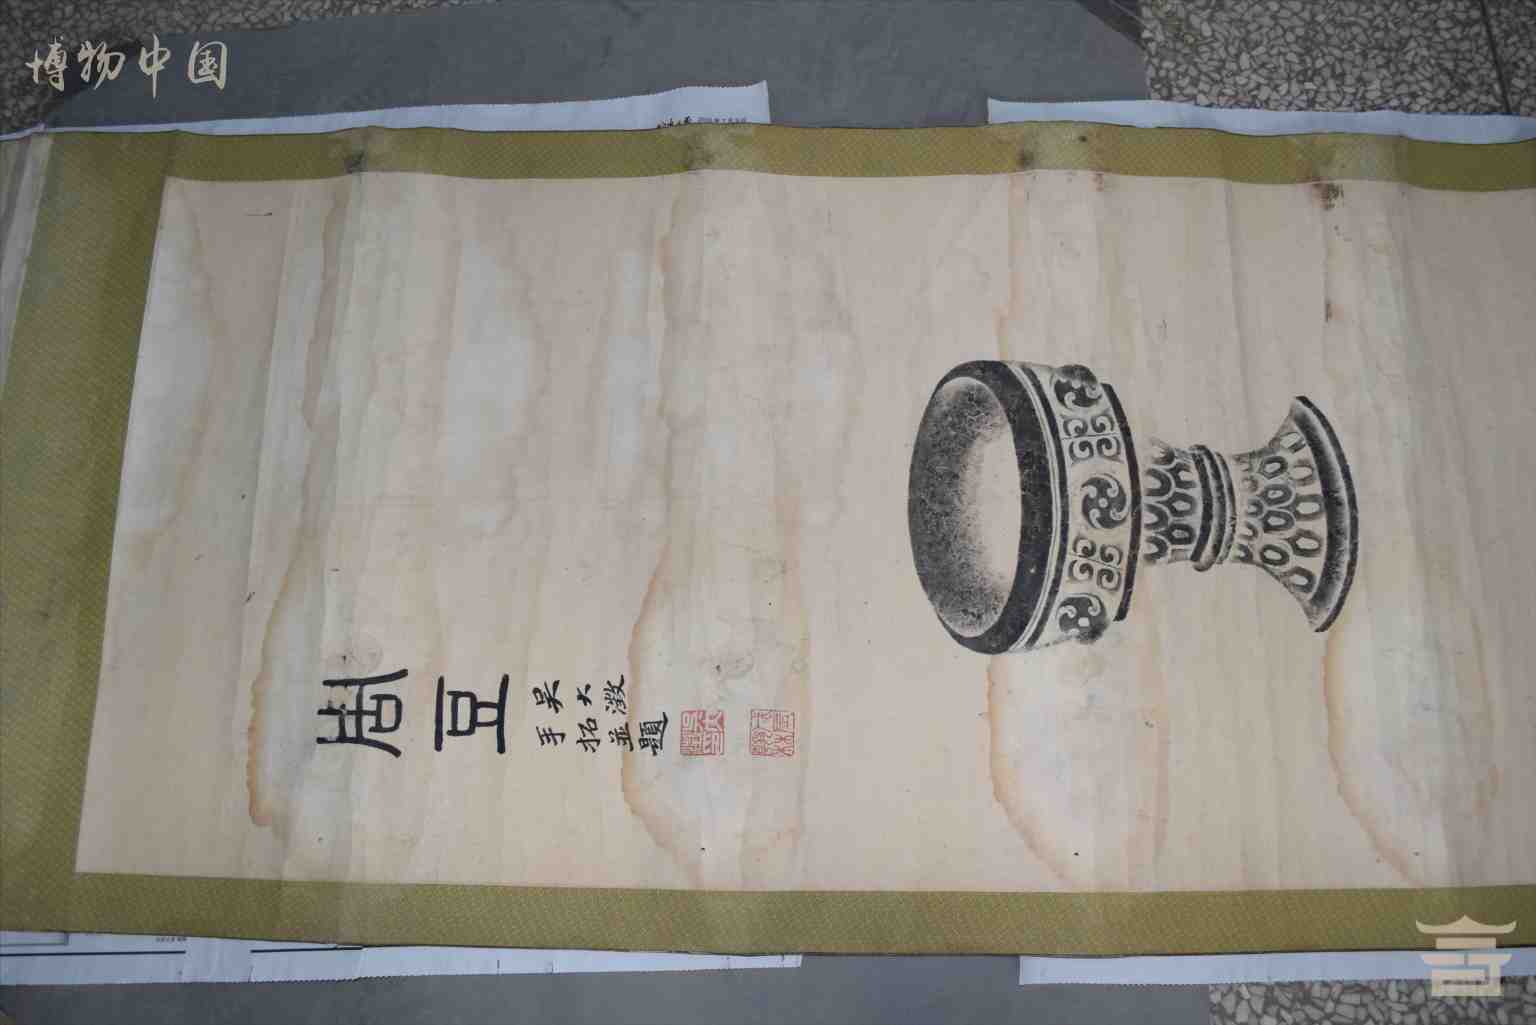 博物中国
周豆
吴大澂
手拓並題